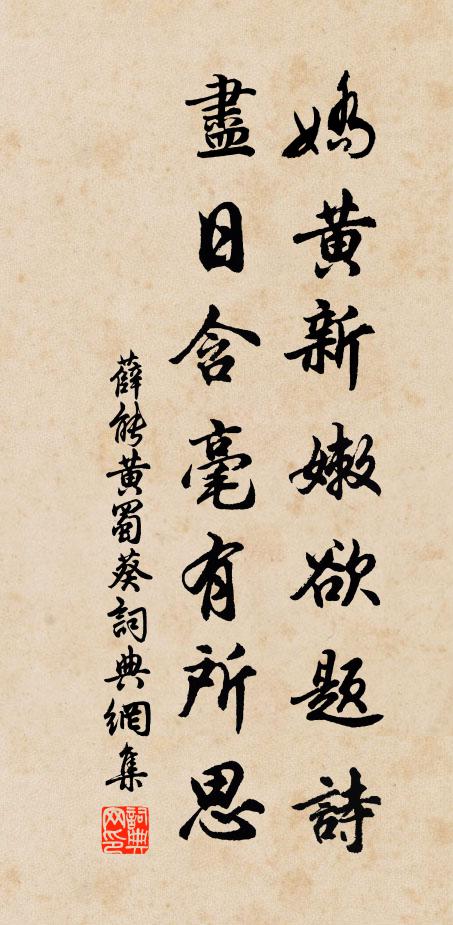 嬌黃新嫩欲題詩
盡日含毫有所思
薛能黃蜀葵詞典網集
詞典网印